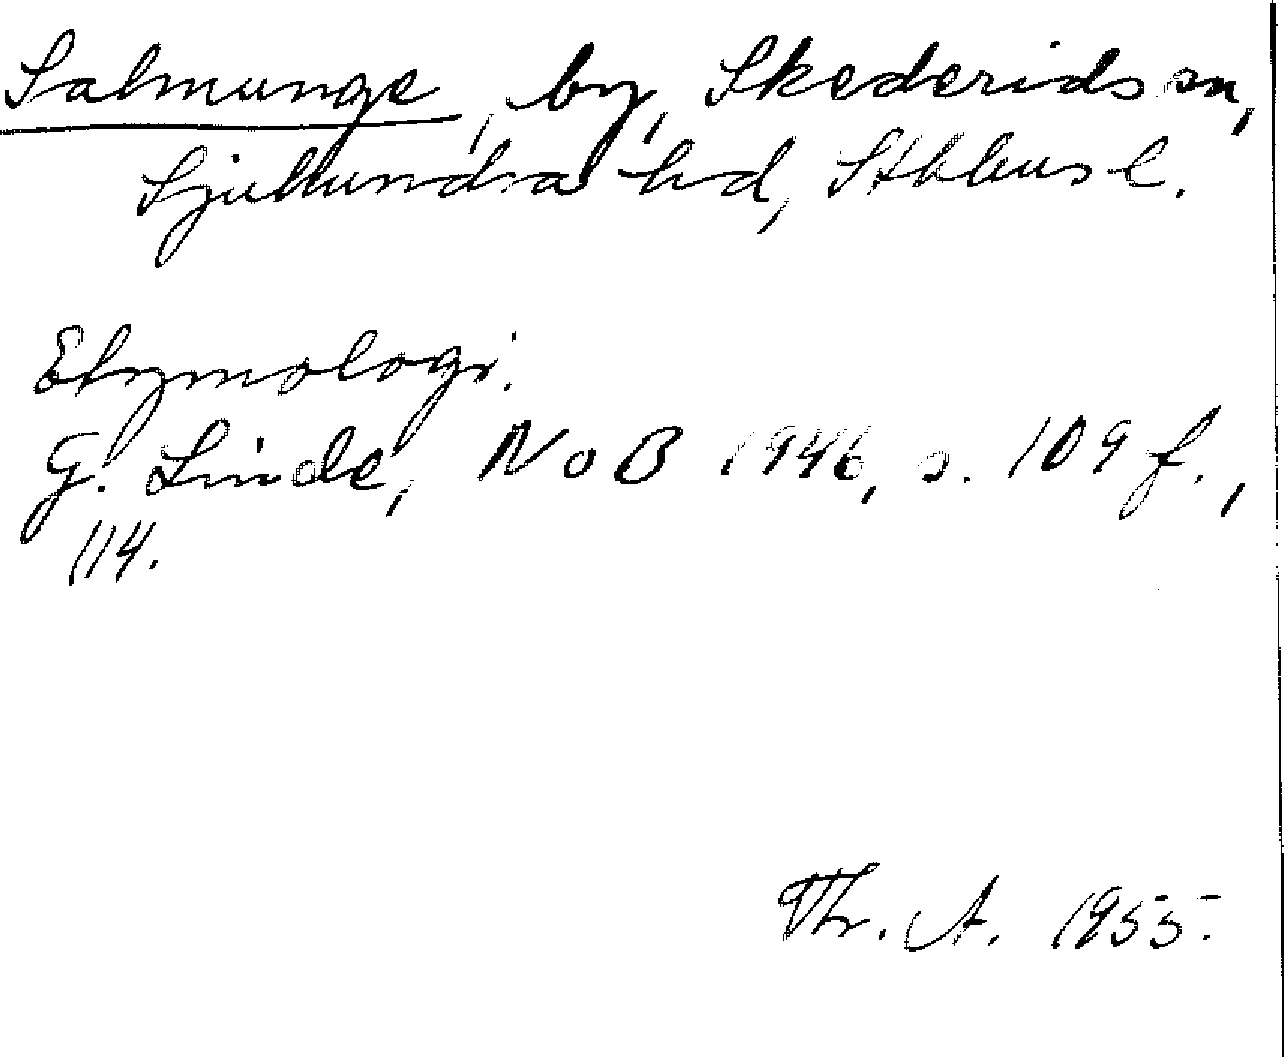 Salmunge, by, Skederids sn,
Sjuhundra hd, Sthlms l.
Etymologi.
G. Linde, NoB 1946, s. 109 f.,
114.
Thr. A. 1955.